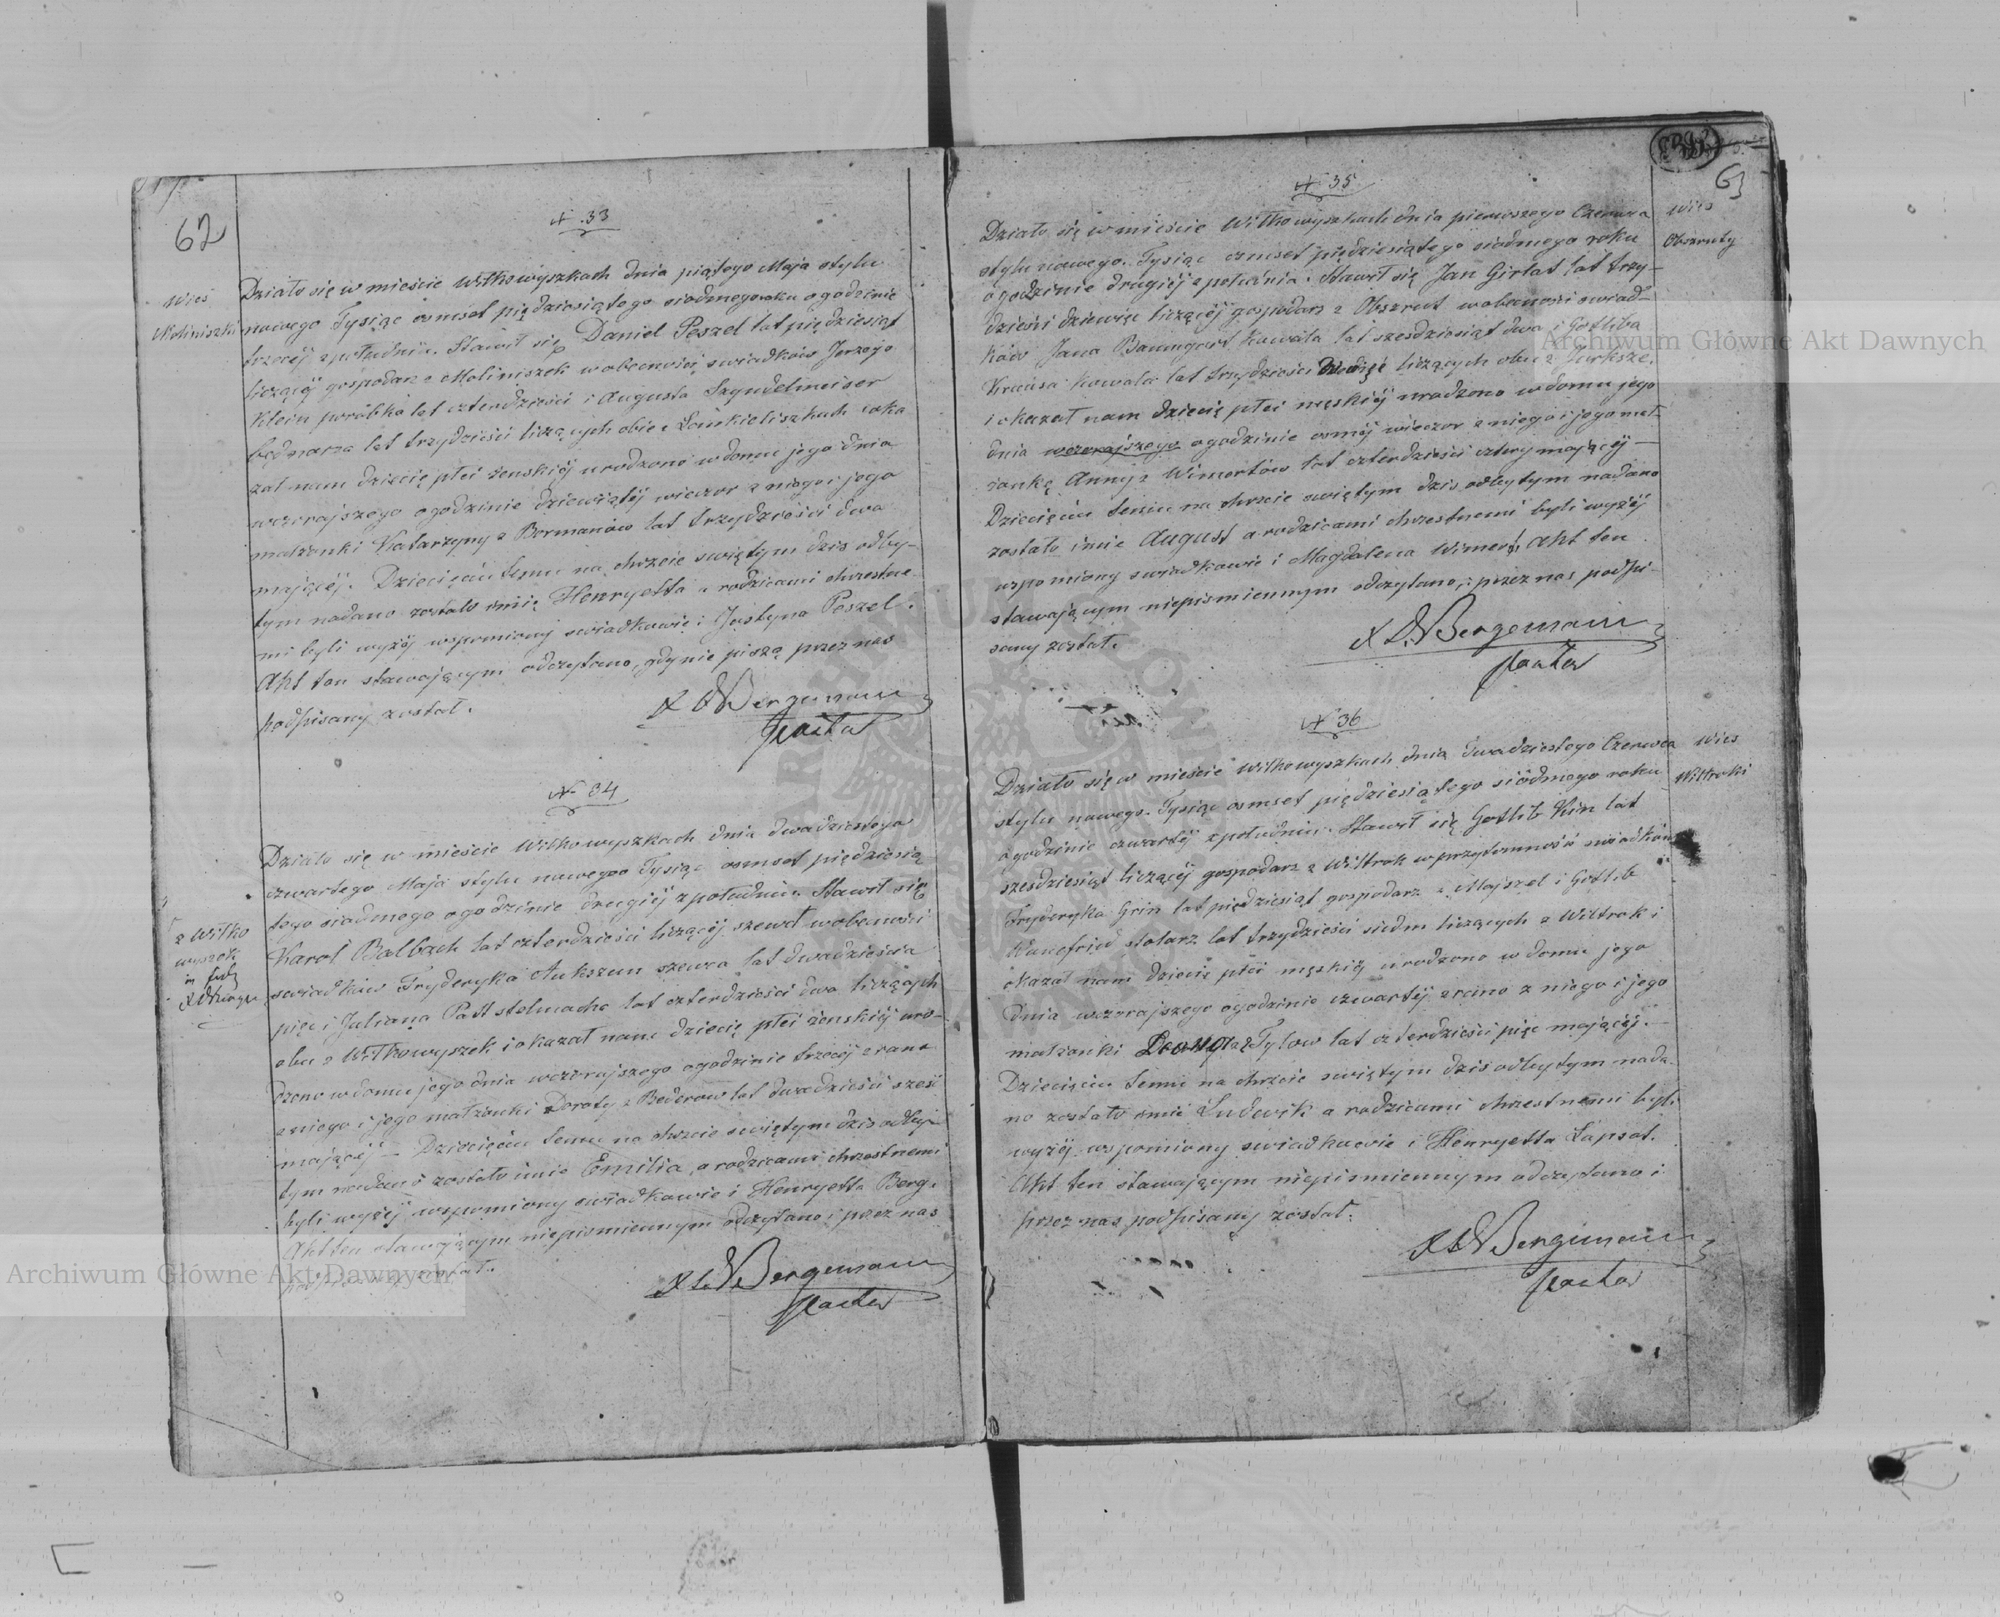 62
N 33
Wieś
Moliniszki
Działo się w mieście Wiłkowyszkach dnia piątego Maja stylu
nowego Tysiąc osmset piędziesiątego siodmego roku o godzinie
trzeciéj z południa. Stawił się Daniel Peszel lat piędziesiąt
liczącéj gospodarz z Moliniszek w obecności swiadków Jerzego
Klein parobka lat czterdzieści i Augusta Szyndelmeiser
będnarza lat trzydzieści liczących obie z Łankieliszkach i oka
zał nam dziecię płci żenskiéj urodzone w domu jego dnia
wczorajszego o godzinie dziewiątéj wieczor z niego i jego
małżonki Katarzyny z Bormanów lat trzydzieści dwa
mającéj. Dziecięciu temu na chrzcie swiętym dzis odby-
tym nadano zostało imię Henryetta a rodzicami chrzestne
mi byli wyżéj wspomiony swiadkowie i Justyna Peszel.
Akt ten stawającym odczytano, gdy nie piszą przez nas
podpisany został.
Bergemann
Pastor
N 34
z Wiłko
wyszek
Działo się w mieście Wiłkowyszkach dnia dwadziestego
czwartego Maja stylu nowego Tysiąc osmset piędziesią
tego siodmego o godzinie drugiéj z południa. Stawił się
Karol Balbach lat czterdzieści liczącéj szewc w obecności
swiadków Fryderyka Aukszun szewca lat dwadzieścia
pięc i Juliana Patt stelmacha lat czterdzieści dwa liczących
obu z Wiłkowyszek i okazał nam dziecię płci żenskiéj uro-
dzone w domu jego dnia wczorajszego o godzinie trzeciéj z rana
z niego i jego małżonki Doroty z Bederow lat dwadzieści szesć
mającéj – Dziecięciu temu na chrzcie swiętym dzis odby-
tym nadano zostało imie Emilia, a rodzicami chrzestnemi
byli wyżéj wspomiony swiadkowie i Henryetta Berg.
Akt ten stawającym niepismiennym odczytano i przez nas
podpisany został.
Bergemann
Pastor
63
N 35
Wies
Obszruty
Działo się w mieście Wiłkowyszkach dnia pierwszego Czerwca
stylu nowego. Tysiąc osmset piędziesiątego siodmego roku
o godzinie drugiéj z południa. Stawił się Jan Girłat lat trzy-
dzieści dziewięc liczącéj gospodarz z Obszrut w obecności swiad-
ków Jana Baumgart kowala lat szesdziesiąt dwa i Gotliba
Krausa kowala lat trzydzieści liczących obu z Turksze.
i okazał nam dziecię płci męskiéj urodzone w domu jego
dnia wczorajszego o godzinie osméj wieczor z niego i jego mał
żonką Anny z Wimertów lat czterdzieści cztery mającéj –
Dziecięciu temu na chrzcie swiętym dzis odbytym nadano
zostało imie August a rodzicami chrzestnemi byli wyżéj
wspomiony swiadkowie i Magdalena Wimert, Akt ten
stawającym niepismiennym odczytano, i przez nas podpi-
sany został.
Bergemann
Pastor
N 36
Wies
Wiltroki
Działo się w mieście Wiłkowyszkach dnia dwadziestego Czerwca
stylu nowego. Tysiąc osmset piędziesiątego siódmego roku
o godzinie czwartéj z południa. Stawił się Gotlib Kin lat
szesdziesiąt liczącéj gospodarz z Wiltrok w przytomność swiadków
Fryderyka Grin lat piędziesiąt gospodarz z Majszel i Gotlib
Hanefried stolarz lat trzydzieści siedm liczących z Wiltrok i
okazał nam dziecię płci męskiéj urodzone w domu jego
dnia wczorajszego o godzinie czwartéj z rana z niego i jego
małżonki z Tylow lat czterdzieści pięc mającéj. –
Dziecięciu temu na chrzcie swiętym dzis odbytym nada
no zostało imie Ludwik a rodzicami chrzestnemi byli
wyżéj wspomiony swiadkowie i Henryetta Łapsat.
Akt ten stawającym niepismiennym odczytano i
przez nas podpisany został.
Bergemann
Pastor
Archiwum Główne Akt Dawnych
Archiwum Główne Akt Dawnych